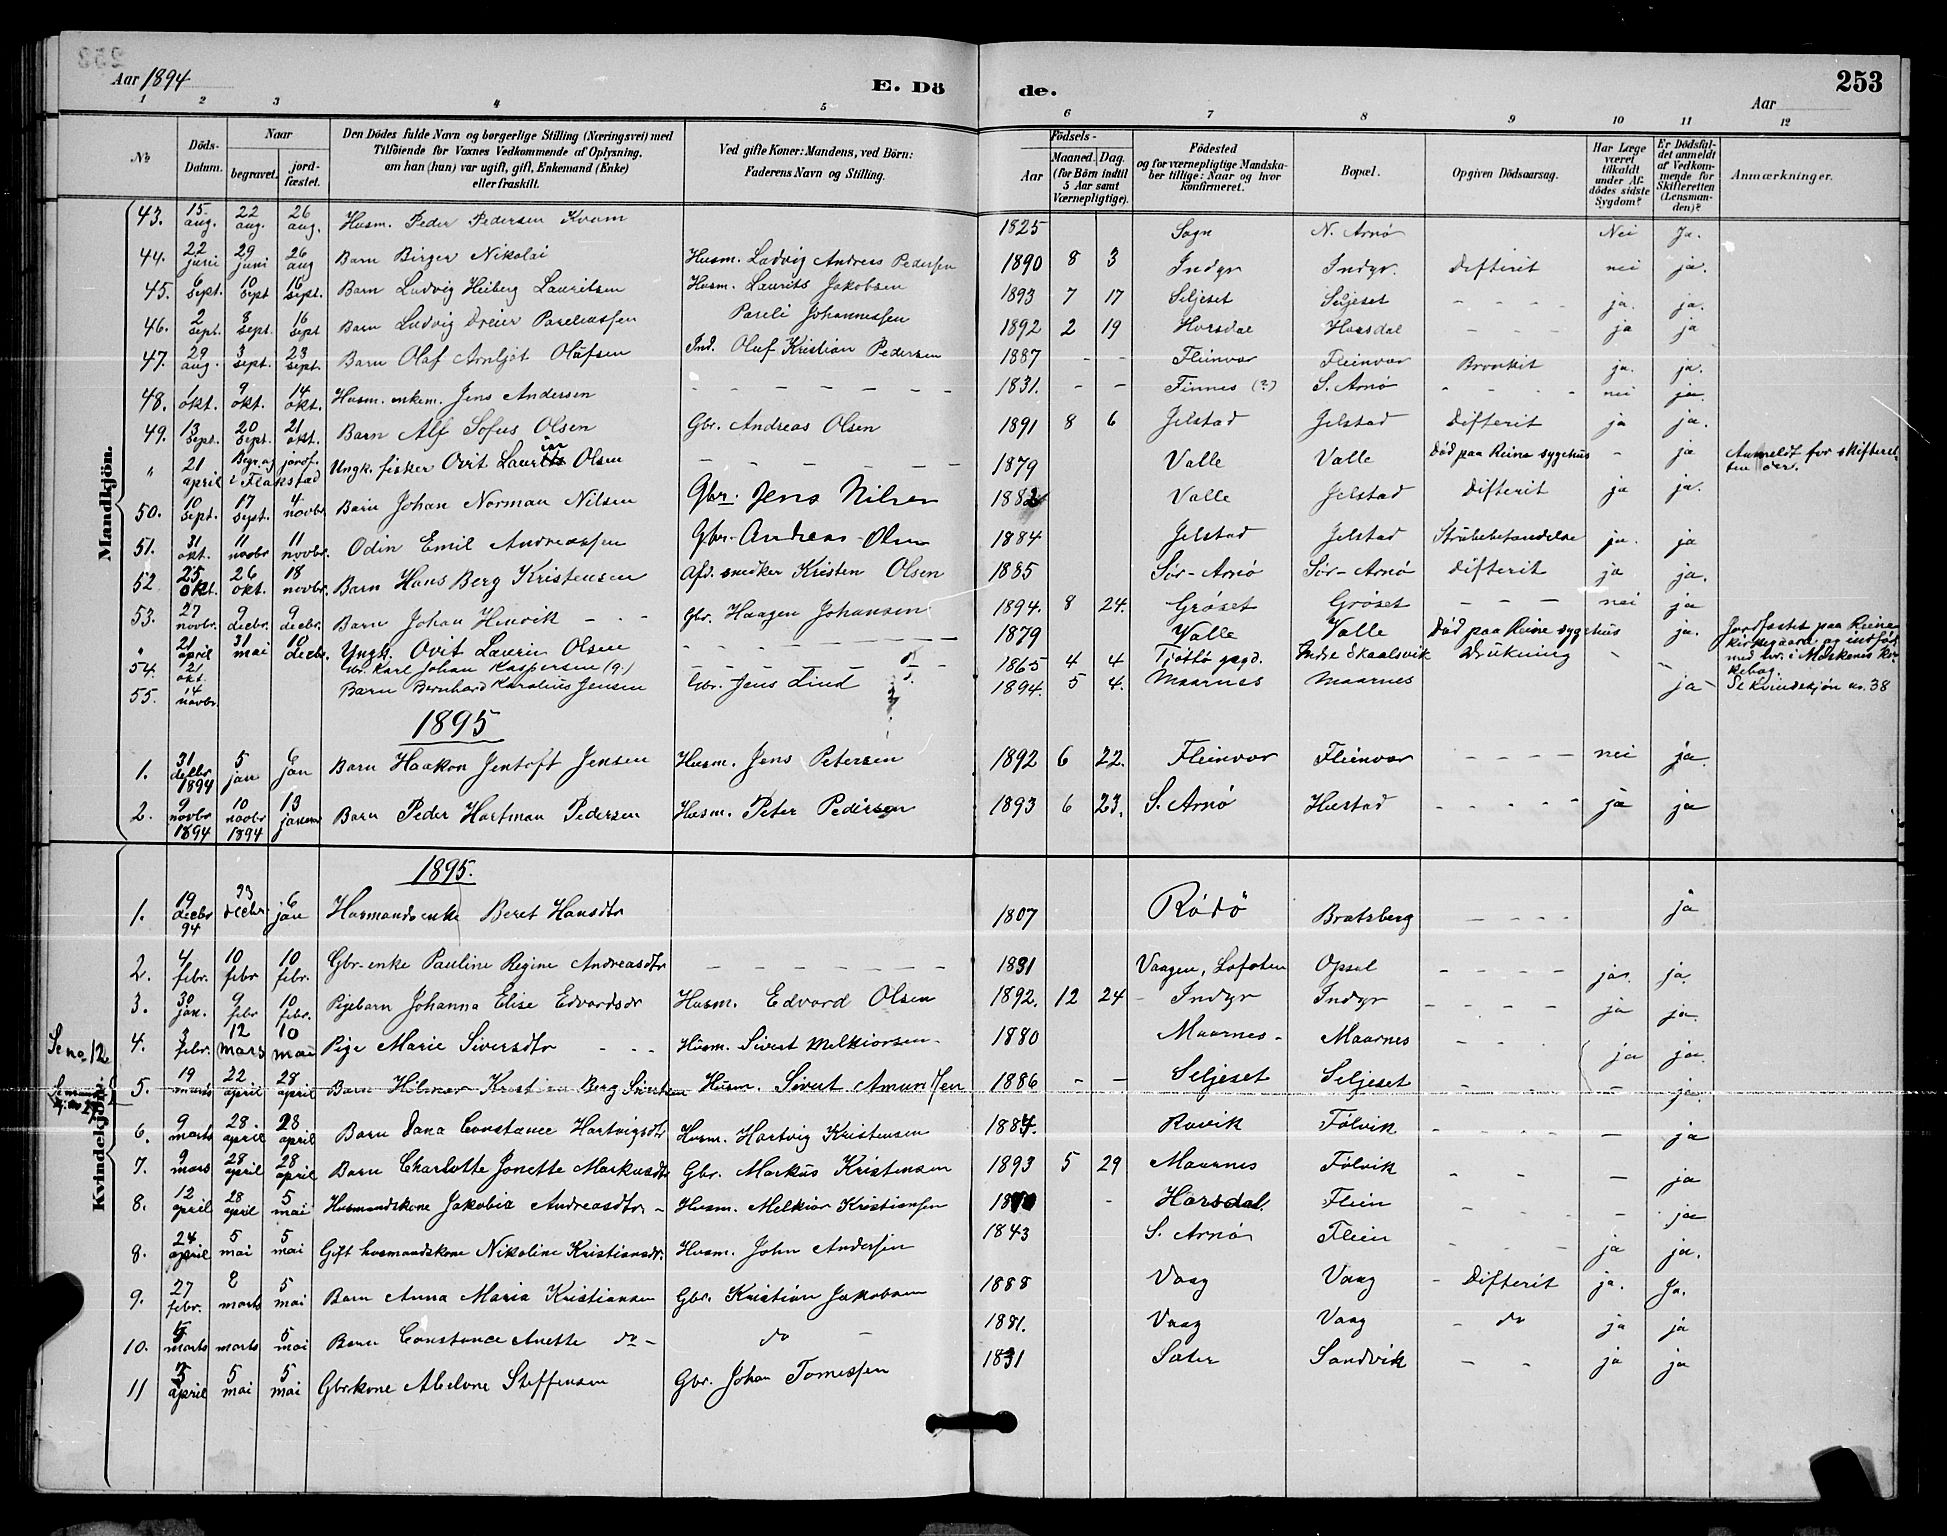 Aar 1894
E. Dö
de.
253
Aar
1 2 3 4 5 6 7 8 9 10 11 12
No
Döds-Datum.
Naar begravet. jordfæstet.
Den Dödes fulde Navn og borgerlige Stilling (Næringsvei) med Tilföiende for Voxnes Vedkommende af Oplysning, om han (hun) var ugift, gift, Enkemand (Enke) eller fraskilt.
Ved gifte Koner: Mandens, ved Börn: Faderens Navn og Stilling.
Födsels- Aar Maaned. Dag. (for Börn indtil 5 Aar samt Værnepligtige).
Födested og for værnepligtige Mandskaber tillige: Naar og hvor konfirmeret.
Bopæl.
Opgiven Dödsaarsag.
Har Læge været tilkaldt under Afdödes sidste Sygdom?
Er Dödsfaldet anmeldt af Vedkommende for Skifteretten (Lensmanden)?
Anmærkninger.
Mandkjön.
43. 15 aug. 22 aug. 26 aug. Husm. Peder Pedersen Kvam 1825 Sogn N. Arnø Nei Ja.
44. 22 juni 29 juni 26 aug Barn Birger Nikolai Husm. Ludvig Andreas Pedersen 1890 8 3 Indyr Indyr. Difterit nei ja.
45. 6 sept. 10 sept 16 sept. Barn Ludvig Heiberg Lauritsen Husm. Laurits Jakobsen 1893 7 17 Seljeset Seljeset - - - - ja. ja.
46. 2 sept. 8 sept. 16 sept Barn Ludvig Dreier Pareliussen Pareli Johannessen 1892 2 19 Horsdal Horsdal - - - ja ja
47. 29 aug. 3 sept. 23 sept. Barn Olaf Arnljot Olufsen Ind. Oluf Kristian Pedersen 1887 - - Fleinvær Fleinvær Bronkit ja. ja.
48. 1 okt. 9 okt. 14 okt. Husm. enkem. Jens Andersen - - - 1831. - - Finnes (?) S. Arnø - - - - nei ja.
49. 13 sept. 20 sept. 21 okt. Barn Alf Sofus Olsen Gbr. Andreas Olsen 1891 8 6 Jelstad Jelstad Difterit ja ja.
" 21 april Begr. og jordf. i Flakstad Ungk. fisker Ovit Laurits ian Olsen - - - 1879 Valle Valle Död paa Reine sygehus - ja Anmeldt for skifteretten der.
50. 10 sept. 17 sept. 4 novbr. Barn Johan Norman Nilsen Gbr. Jens Nilsen 1882 Valle Jelstad Difterit ja ja.
51. 31 okt. 11 novbr 11 novbr. Odin Emil Andreassen Gbr. Andreas Olsen 1884 Jelstad Jelstad Strubebetændelse ja. ja
52 25 okt. 26 okt. 18 novbr. Barn Hans Berg Kristensen Afd. snedker Kristen Olsen 1885 Sör-Arnö Sör-Arnö Difterit ja ja.
53. 27 novbr. 9 decbr. 9 decbr. Barn Johan Henrik - - Gbr. Haagen Johansen 1894. 8 24. Gröset Gröset - - - nei ja
" 21 april 31 mai 10 decbr. Ungk. Ovit Laurin Olsen - - - 1879 Valle Valle Död paa Reine sygehus ja. Jordfæstet paa Reine kirkegaard og indført med nr. i Moskenes kirkebog.
54. 21 okt. Gbr. Karl Johan Kaspersen (g.) - - - 1865 4 4 Tjøttø pgd. Indre Skaalsvik Drukning - -
55. 14 novbr. Barn Bernhard Karolius Jensen Gbr. Jens Lind 1894. 5 4. Maarnes Maarnes ja - Se Kvindekjön no. 38
1895
1. 31 decbr 1894 5 jan 6 jan Barn Haakon Jentoft Jensen Husm. Jens Petersen 1892 6 22. Fleinvær Fleinvær - - - - nei ja.
2. 9 novbr 1894 10 novbr 1894 13 januar Barn Peder Hartman Pedersen Husm. Peter Pedersen 1893 6 23. S. Arnö Hustad - - - - - ja ja
Kvindekjön.
1895.
1. 19 decbr 94 23 decbr. 6 jan Husmandsenke Beret Hansdtr 1807 Rödö Bratsberg - - - - ja
2. 4 febr. 10 febr 10 febr. Gbr-enke Pauline Regine Andreasdtr - - - 1831 Vaagen, Lofoten Opsal - - - - ja. ja.
3. 30 jan. 9 febr 10 febr. Pigebarn Johanna Elise Edvardsdr Husm. Edvard Olsen 1892. 12 24 - Indyr Indyr - - - - ja ja.
Se no 12
4. 3 febr. 12 mars 10 mai Pige Marie Siversdtr - - - Husm. Sivert Melkiorsen - 1880 Maarnes - Maarnes - - - ja ja.
5. 19 marts 22 april 28 april Barn Hilmar Kristian Berg Sivertsen Husm. Sivert Amundsen 1886 - - Seljeset Seljeset - - - - ja.
6. 9 marts 28 april 28 april Barn Dana Constance Hartvigsdtr Husm. Hartvig Kristensen 1884. Ravik Følvik - - - - - ja
7. 9 mars 28 april 28 april Barn Charlotte Jonette Markusdtr Gbr. Markus Kristensen 1893 5 29 Maarnes Følvik - - - ja
8. 12 april 28 april 5 mai Husmandskone Jakobia Andreasdtr - Husm. Melkior Kristiansen - Horsdal. Flein - - - - - ja
8. 24 april 5 mai 5 mai Gift husmandskone Nikoline Kristiansdr. Husm. John Andersen 1843 S. Arnø Flein - - - ja ja.
9. 27 febr. 8 marts 5 mai Barn Anna Maria Kristiansen Gbr. Kristian Jakobsen 1888 Vaag Vaag - Difterit ja. Ja.
10. marts marts 5 mai Barn Constance Anette do - do - 1881. Vaag Vaag - do ja ja
11 april 5 mai 5 mai Gbrkone Abelone Steffensen Gbr. Johan Tomessen 1831 Sæter Sandvik - - ja ja